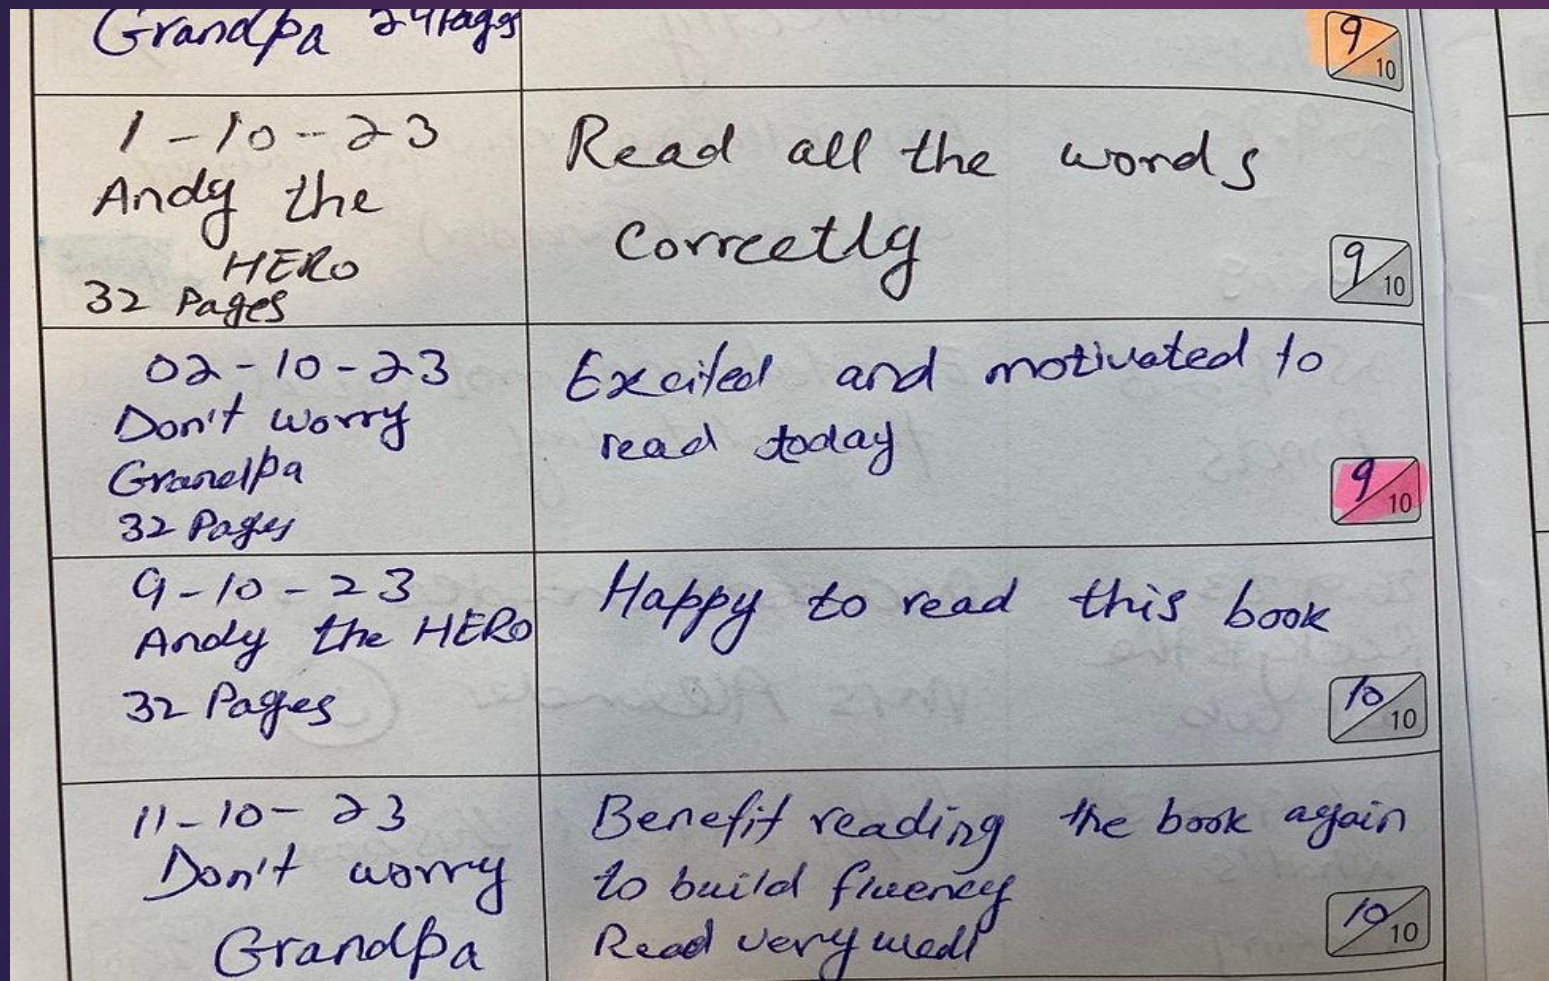 Grandpa 24 Pages
9/10
1-10-23
Andy the
HERO
32 Pages
Read all the words
correctly
9/10
02-10-23
Don't worry
Grandpa
32 Pages
Excited and motivated to
read today
9/10
9-10-23
Andy the HERO
32 Pages
Happy to read this book
10/10
11-10-23
Don't worry
Grandpa
Benefit reading the book again
to build fluency
Read very well
10/10